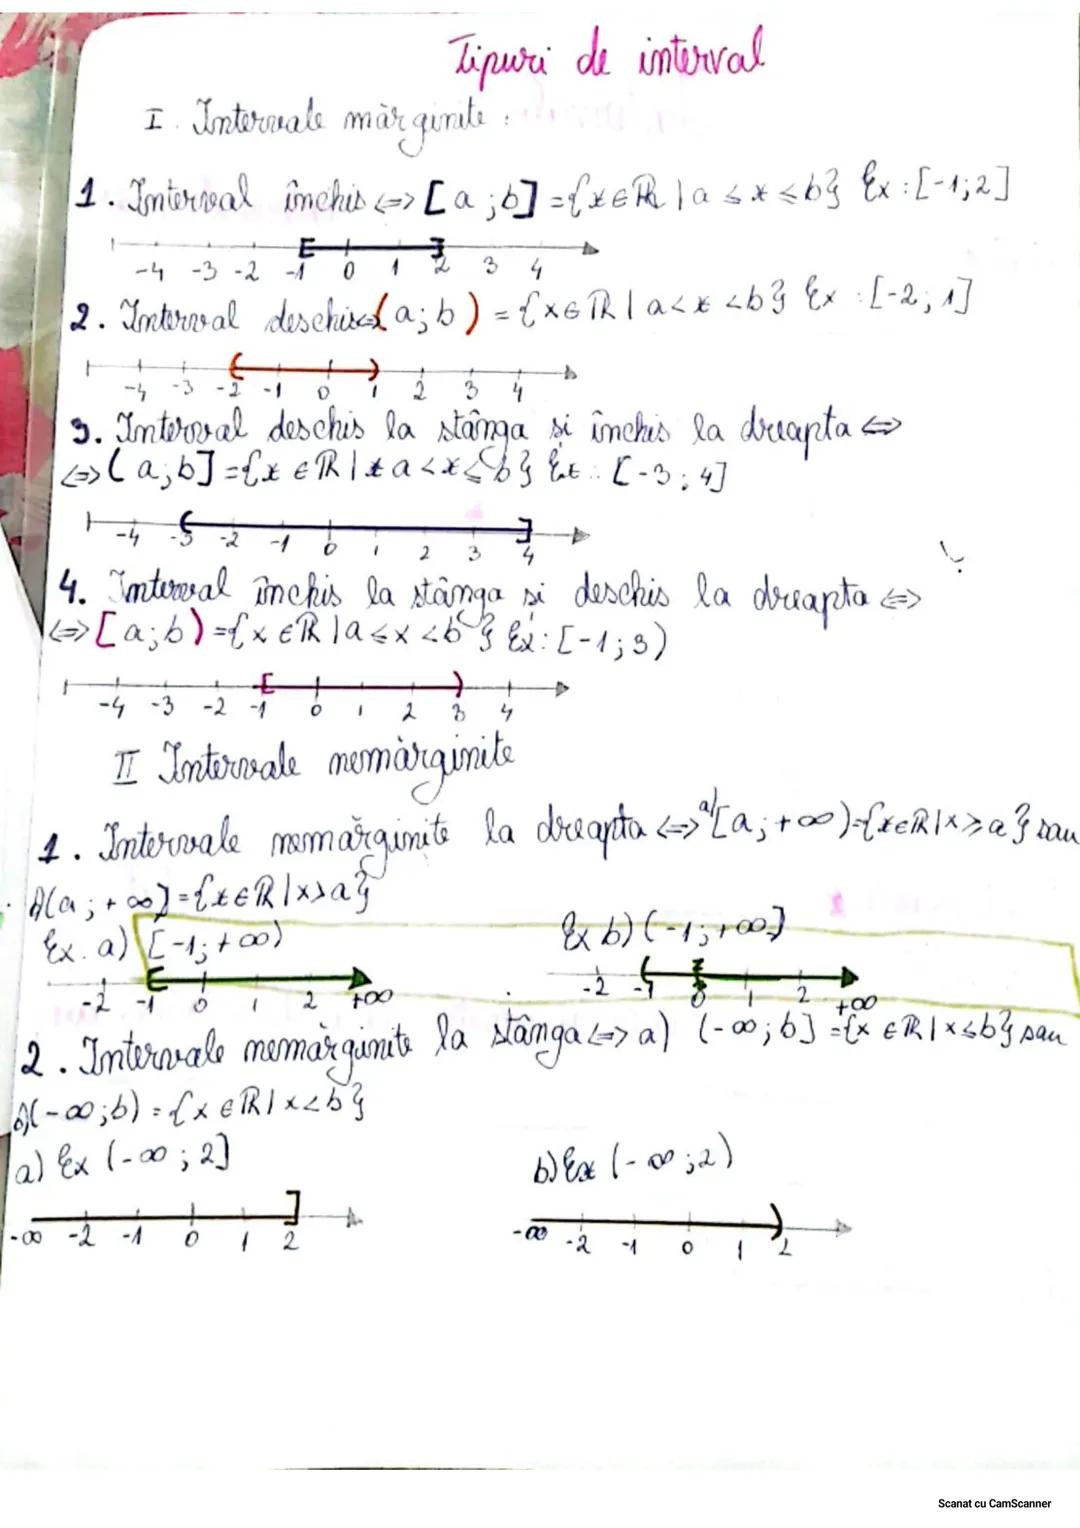 Tipuri de interval
I. Intervale mărginite:
1. Interval închis <=> [a ;b] = {x∈ℝ | a ≤ x ≤ b} Ex: [-1;2]
-4 -3 -2 -1 0 1 2 3 4
2. Interval deschis<=>(a;b) = {x∈ℝ | a<x<b} Ex: [-2; 1]
-4 -3 -2 -1 0 1 2 3 4
3. Interval deschis la stânga si închis la dreapta <=>
<=> (a;b] = {x∈ℝ | a<x≤b} Ex: [-3; 4]
-4 -3 -2 -1 0 1 2 3 4
4. Interval închis la stânga si deschis la dreapta <=>
<=> [a;b) = {x∈ℝ | a≤x<b} Ex: [-1;3)
-4 -3 -2 -1 0 1 2 3 4
II Intervale nemărginite
1. Intervale nemărginite la dreapta <=> a) [a; +∞)={x∈ℝ|x≥a} sau
b)(a; +∞] = {x∈ℝ | x>a}
Ex. a) [-1; +∞) Ex b) (-1; +∞]
-2 -1 0 1 2 +∞ -2 -1 0 1 2 +∞
2. Intervale nemărginite la stânga <=> a) (-∞;b] = {x∈ℝ | x≤b} sau
b)(-∞;b) = {x∈ℝ | x<b}
a) Ex (-∞ ; 2] b) Ex (-∞ ;2)
-∞ -2 -1 0 1 2 -∞ -2 -1 0 1 2
Scanat cu CamScanner